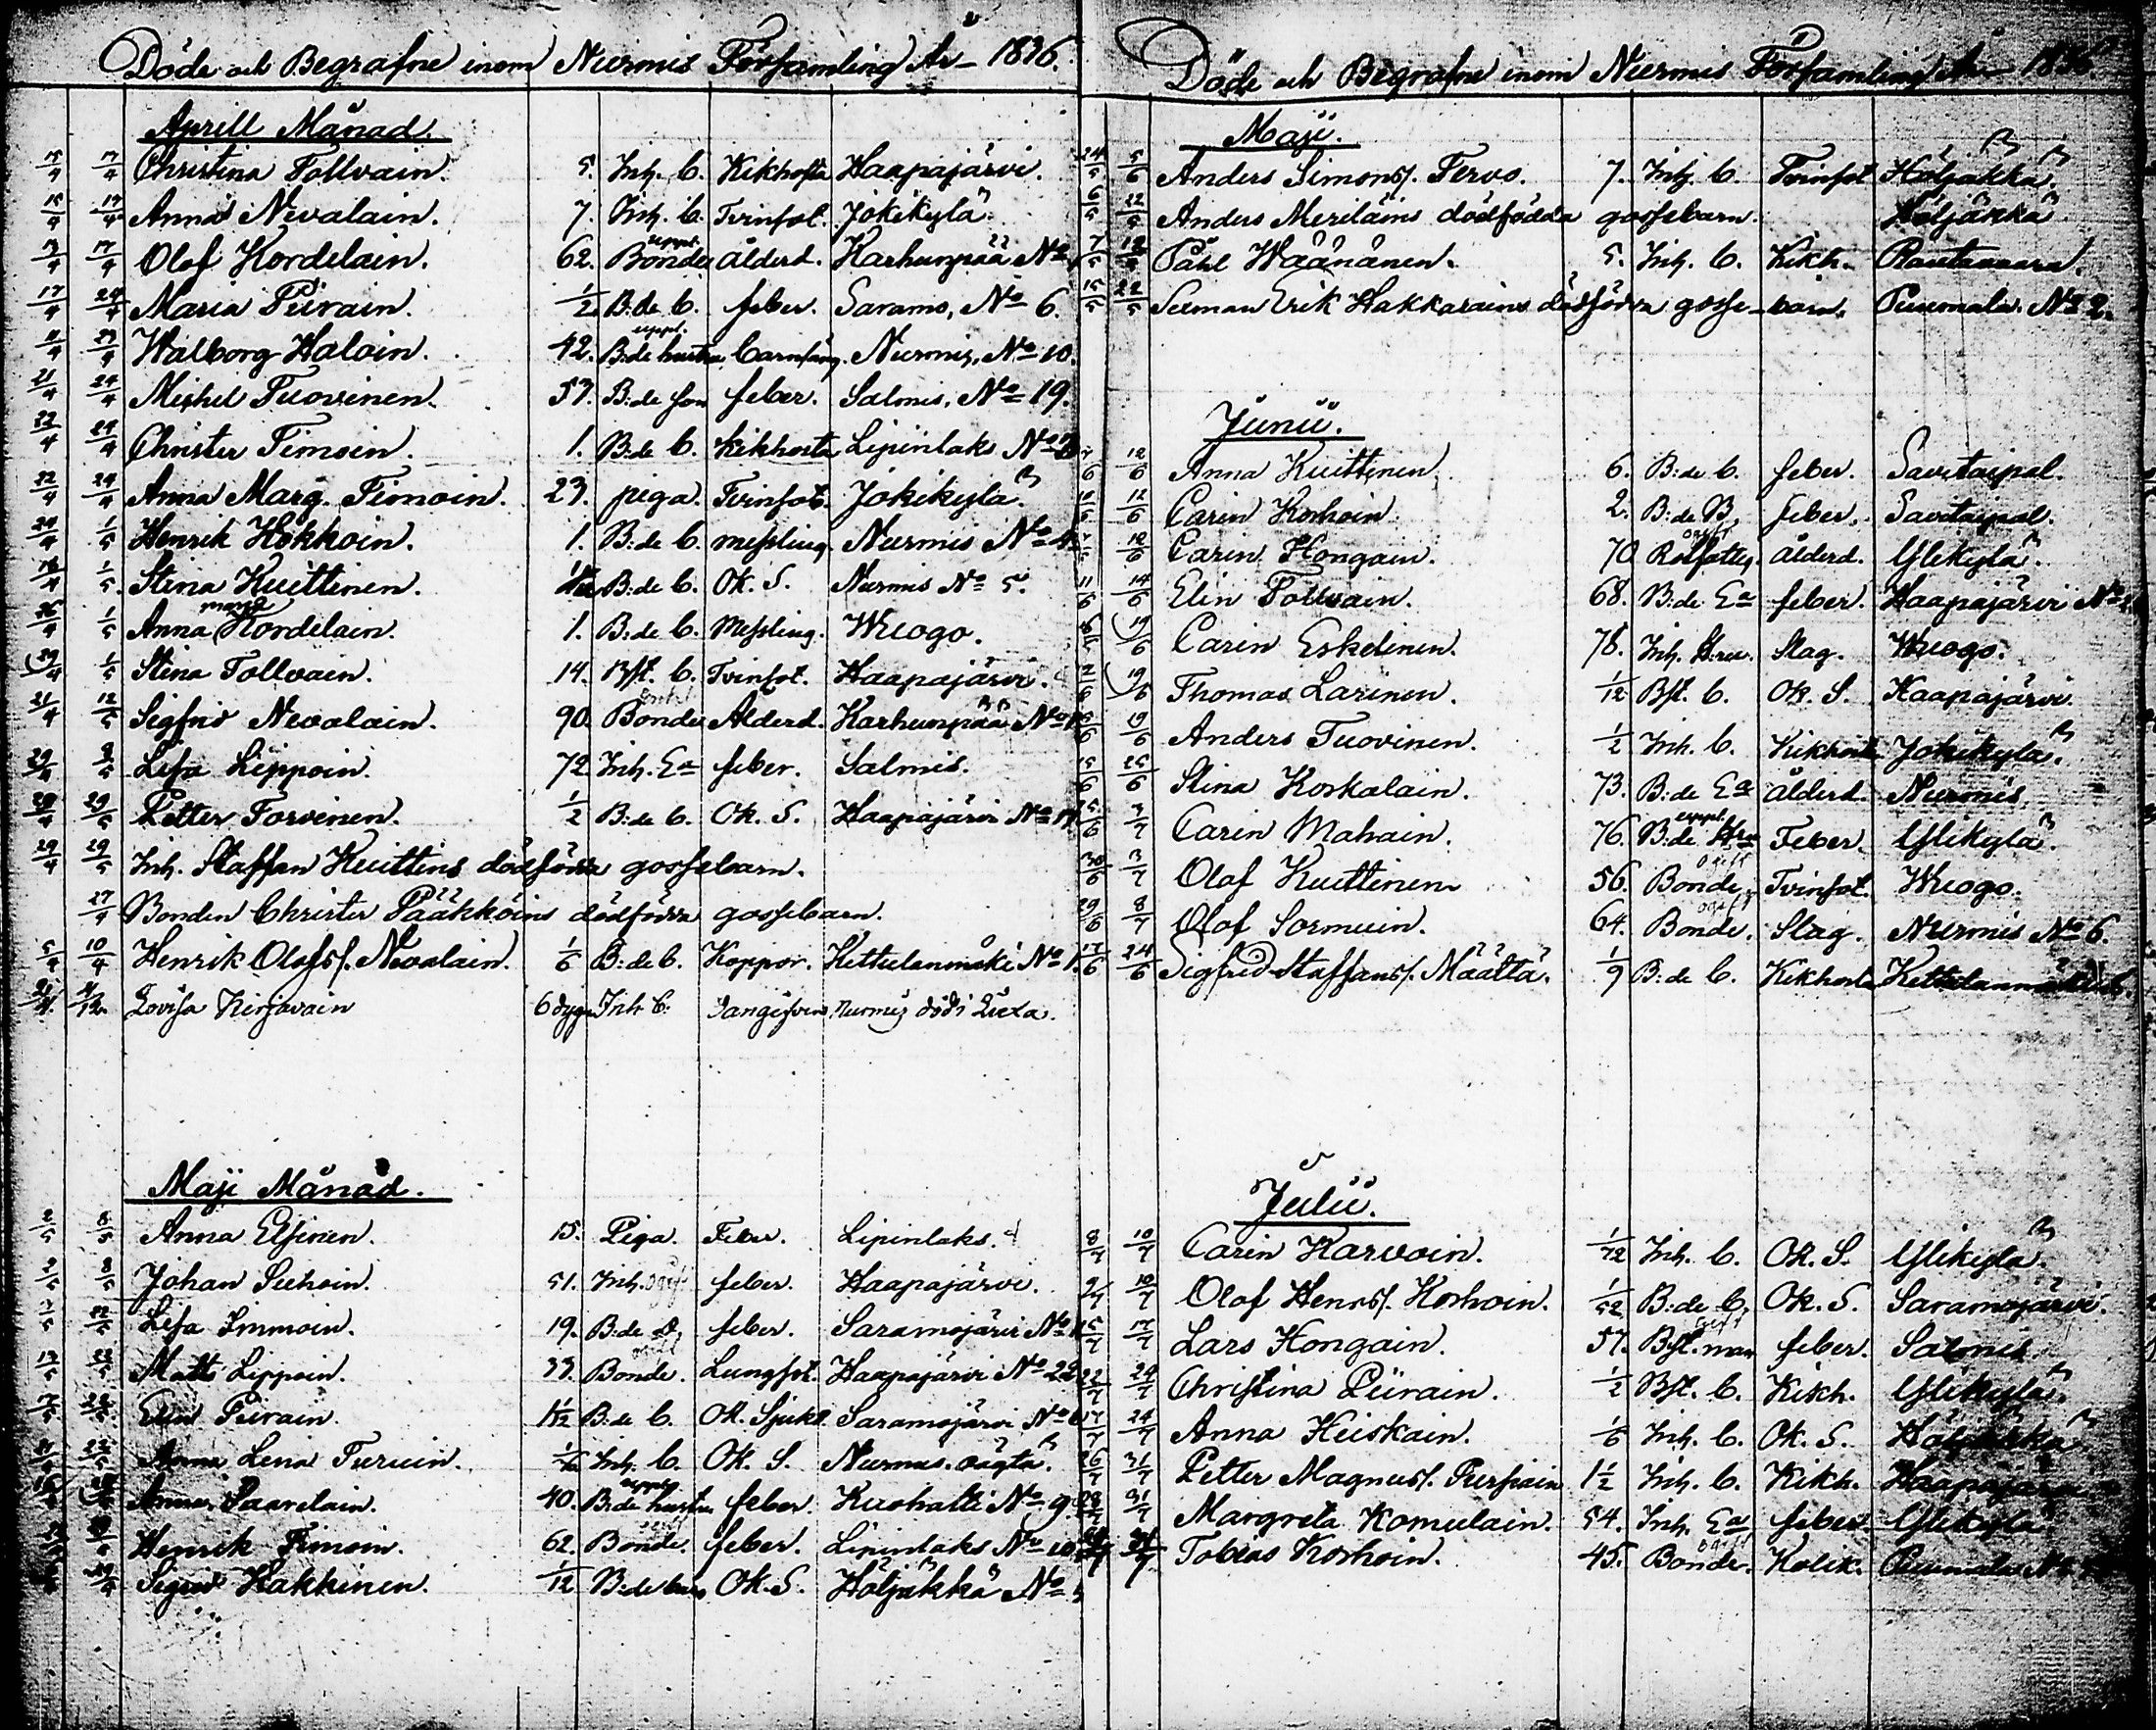 Döde och Begrafne inom Nurmis Församling År 1836.
Aprill Månad.
15/4 17/4 Christina Tollvain. 5. Inh. b. Kikhosta Haapajärvi.
15/4 17/4 Anna Nevalain. 7. Inh. b. Tvinsot. Jokikylä.
17/4 Olof Kordelain. 62. uppt. Bonde ålderd. Karhunpää No
17/4 24/4 Maria Piirain. 1/2 B:de b. feber. Saramo, No 6.
Walborg Haloin. 42. uppt. B:de hustru Barnsäng. Nurmis, No 10.
21/4 24/4 Michel Tuovinen. 53. B:de son feber. Salmis, No 19.
22/4 24/4 Christer Timoin. 1. B:de b. Kikhosta Lipinlaks No
22/4 24/4 Anna Marg. Timoin. 23. piga. Tvinsot. Jokikylä
24/4 1/5 Henrik Hokkoin. 1. B:de b. messling Nurmis No 4
1/5 Stina Kuittinen. B:de b. Ok. S. Nurmis No 5.
26/4 1/5 Anna marg Kordelain. 1. B:de b. Messling. Wuogo.
1/5 Stina Tollvain. 14. Bst. b. Tvinsot. Haapajärvi.
21/4 12/5 Sigfrid Nevalain. 90. enkl. Bonde Ålderd. Karhunpää No
29/4 Lisa Lippoin. 72 Inh. Ea feber. Salmis.
29/5 Petter Torvinen. 1/2 B:de b. Ok. S. Haapajärvi No
29/4 29/5 Inh. Staffan Kuittins dödfödda gossebarn.
27/4 Bonden Christer Pääkköins dödfödda gossebarn.
5/4 10/4 Henrik Olofss. Nevalain. 1/6 B:de b. Koppor. Kettulanmäki No 1.
Lovisa Kirjavain 6 dygn Inh b. Nurmis död i Liexa.
Maji Månad.
2/5 8/5 Anna Elfinen. 15. Piga. Feber. Lipinlaks.
2/5 8/5 Johan Seehoin. 51. Inh. ogift feber. Haapajärvi.
22/5 Lisa Immoin. 19. B:de d. feber. Saramojärvi No
Matts Lippoin. 33. ogift Bonde. Lungsot. Haapajärvi No 22
Elin Piirain. 1 1/12 B:de b. Ok. Sjukd. Saramojärvi No
22/5 Anna Lena Turuin. Inh. b. Ok. S. Nurmis.
Anna Saarelain. 40. uppt. B:de hustru feber. Kuohatti No 9.
Henrik Timoin. 62. Bonde. feber. Lipinlaks No 10
Sigrid Hakkinen. 1/12 B:de barn Ok. S. Höljäkkä No
Döde och Begrafne inom Nurmis Församling År 1836.
Maji.
24/5 5/6 Anders Simonss. Tervo. 7. Inh. b. Tvinsot Höljäkkä.
6/5 22/5 Anders Meriläins dödfödda gossebarn. Höljäkkä
7/5 Påhl Wäänänen. 5. Inh. b. Kikh. Rautavaara.
15/5 22/5 Erik Hakkarains dödfödda gosse-barn. Puumala. No 2.
Junii.
12/6 Anna Kuittinen. 6. B:de b. feber. Savitaipal.
10/6 12/6 Carin Korhoin. 2. B:de B. feber. Savitaipal.
12/6 Carin Hongain. 70 Rotfattig. ålderd. Ylikylä
11/6 14/6 Elin Pöllväin. 68. B:de Ea feber. Haapajärvi No
19/6 Carin Eskelinen. 78. Inh. Hru. Slag. Wuogo.
19/6 Thomas Larinen. 1/12 Bst. b. Ok. S. Haapajärvi
19/6 Anders Tuovinen. 1/2 Inh. b. Kikhosta Jokikylä
25/6 Stina Koskalain. 73. B:de Ea ålderd. Nurmis
25/6 3/7 Carin Mahain. 76. uppt. B:de Hru Feber. Ylikylä.
30/6 3/7 Olof Kuittinen 56. ogift Bonde Tvinsot. Wuogo.
29/6 8/7 Olof Sormuin. 64. ogift Bonde. Slag. Nurmis No 6.
17/6 24/6 Sigfrid Staffanss. Määttä. 1/9 B:de b. Kikhosta Kettulanmäki
Julii.
8/7 10/7 Carin Karvoin. 1/12 Inh. b. Ok. S. Ylikylä.
9/7 10/7 Olof Henrss. Korhoin. 1/52 B:de b. Ok. S. Saramojärvi.
15/7 17/7 Lars Hongain. 57. gift Bst. man feber. Salmis
22/7 24/7 Christina Piirain. 1/2 Bst. b. Kikh. Ylikylä.
17/7 24/7 Anna Heiskain. 1/6 Inh. b. Ok. S. Höljäkkä
26/7 31/7 Petter Magnuss. Tursiain 1 1/2 Inh. b. Kikh. Haapajärvi
31/7 Margreta Komulain. 54. Inh. Ea feber. Ylikylä
31/7 Tobias Korhoin. 45. ogift Bonde. Kolik. Puumala No